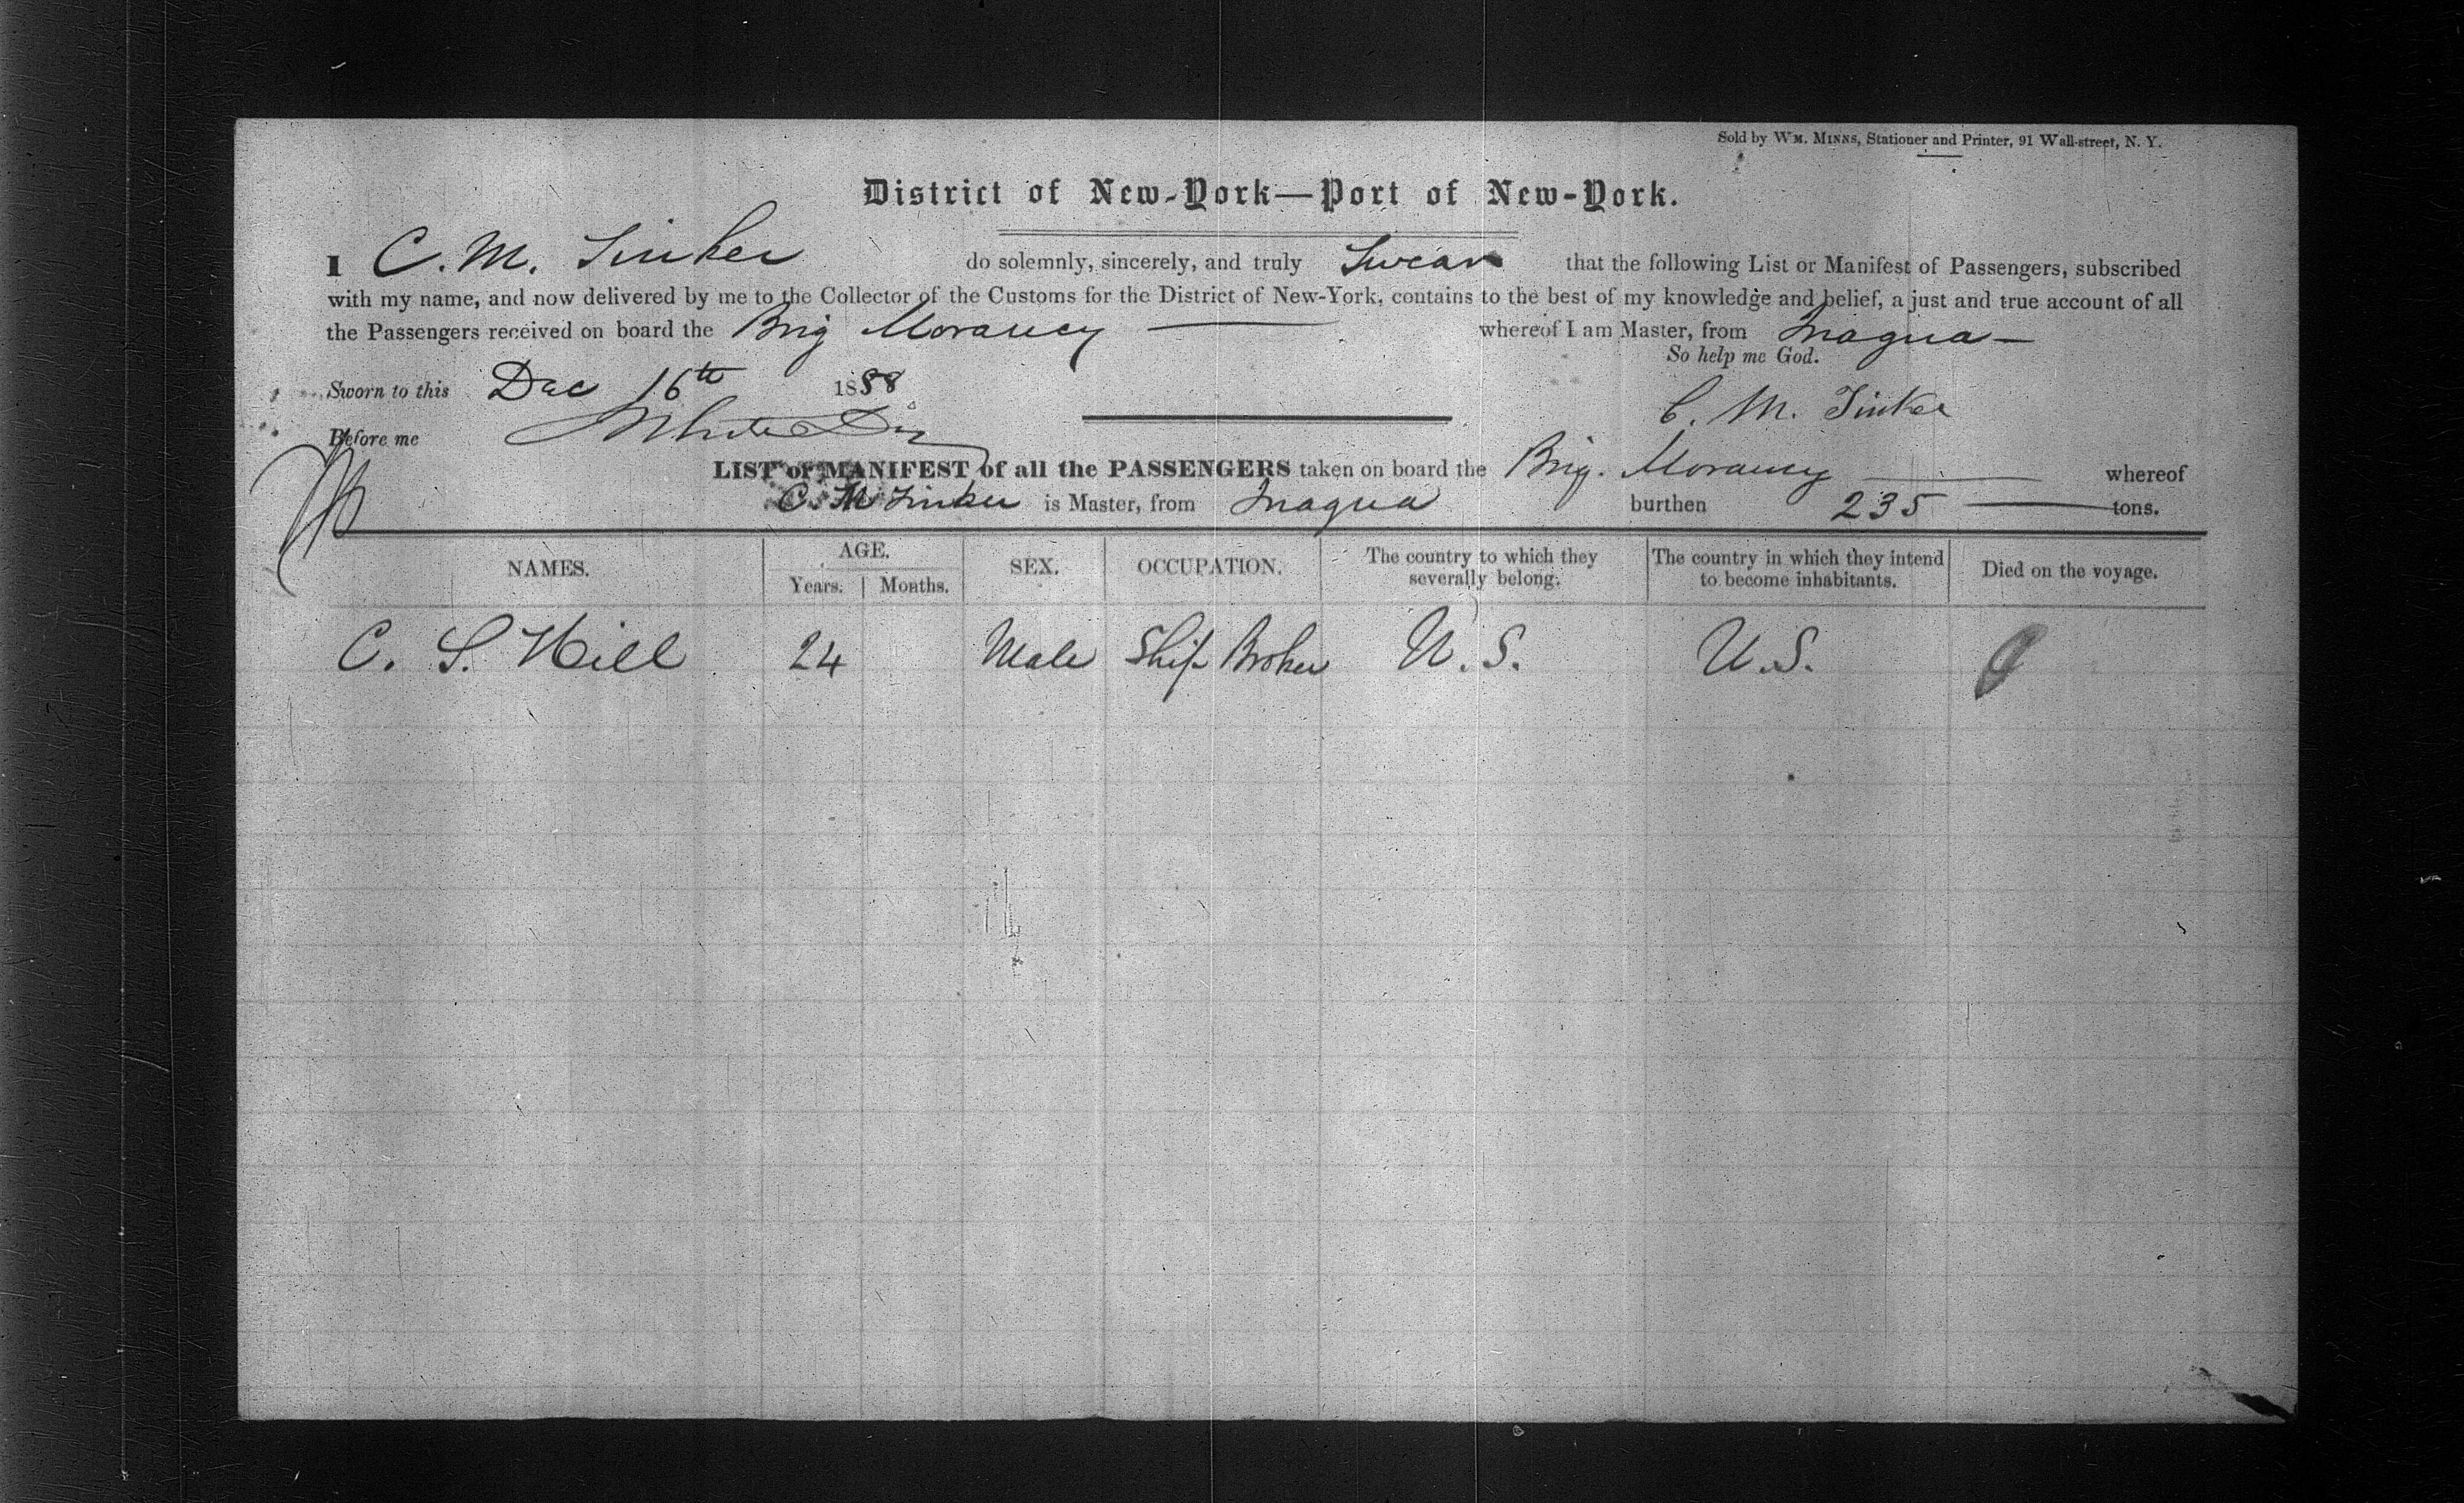 Sold by WM. MINNS, Stationer and Printer, 91 Wall-street, N. Y.
District of New-York—Port of New-York.
I C. M. Tinker do solemnly, sincerely, and truly Swear that the following List or Manifest of Passengers, subscribed
with my name, and now delivered by me to the Collector of the Customs for the District of New-York, contains to the best of my knowledge and belief, a just and true account of all
the Passengers received on board the Brig Morancy whereof I am Master, from Inagua
So help me God.
Sworn to this Dec 16th 1858
C. M. Tinker
Before me
LIST or MANIFEST of all the PASSENGERS taken on board the Brig. Morancy whereof
C. M. Tinker is Master, from Inagua burthen 235 tons.
NAMES. AGE. Years. Months. SEX. OCCUPATION. The country to which they severally belong. The country in which they intend to become inhabitants. Died on the voyage.
C. S. Hill 24 Male Ship Broker U. S. U. S.